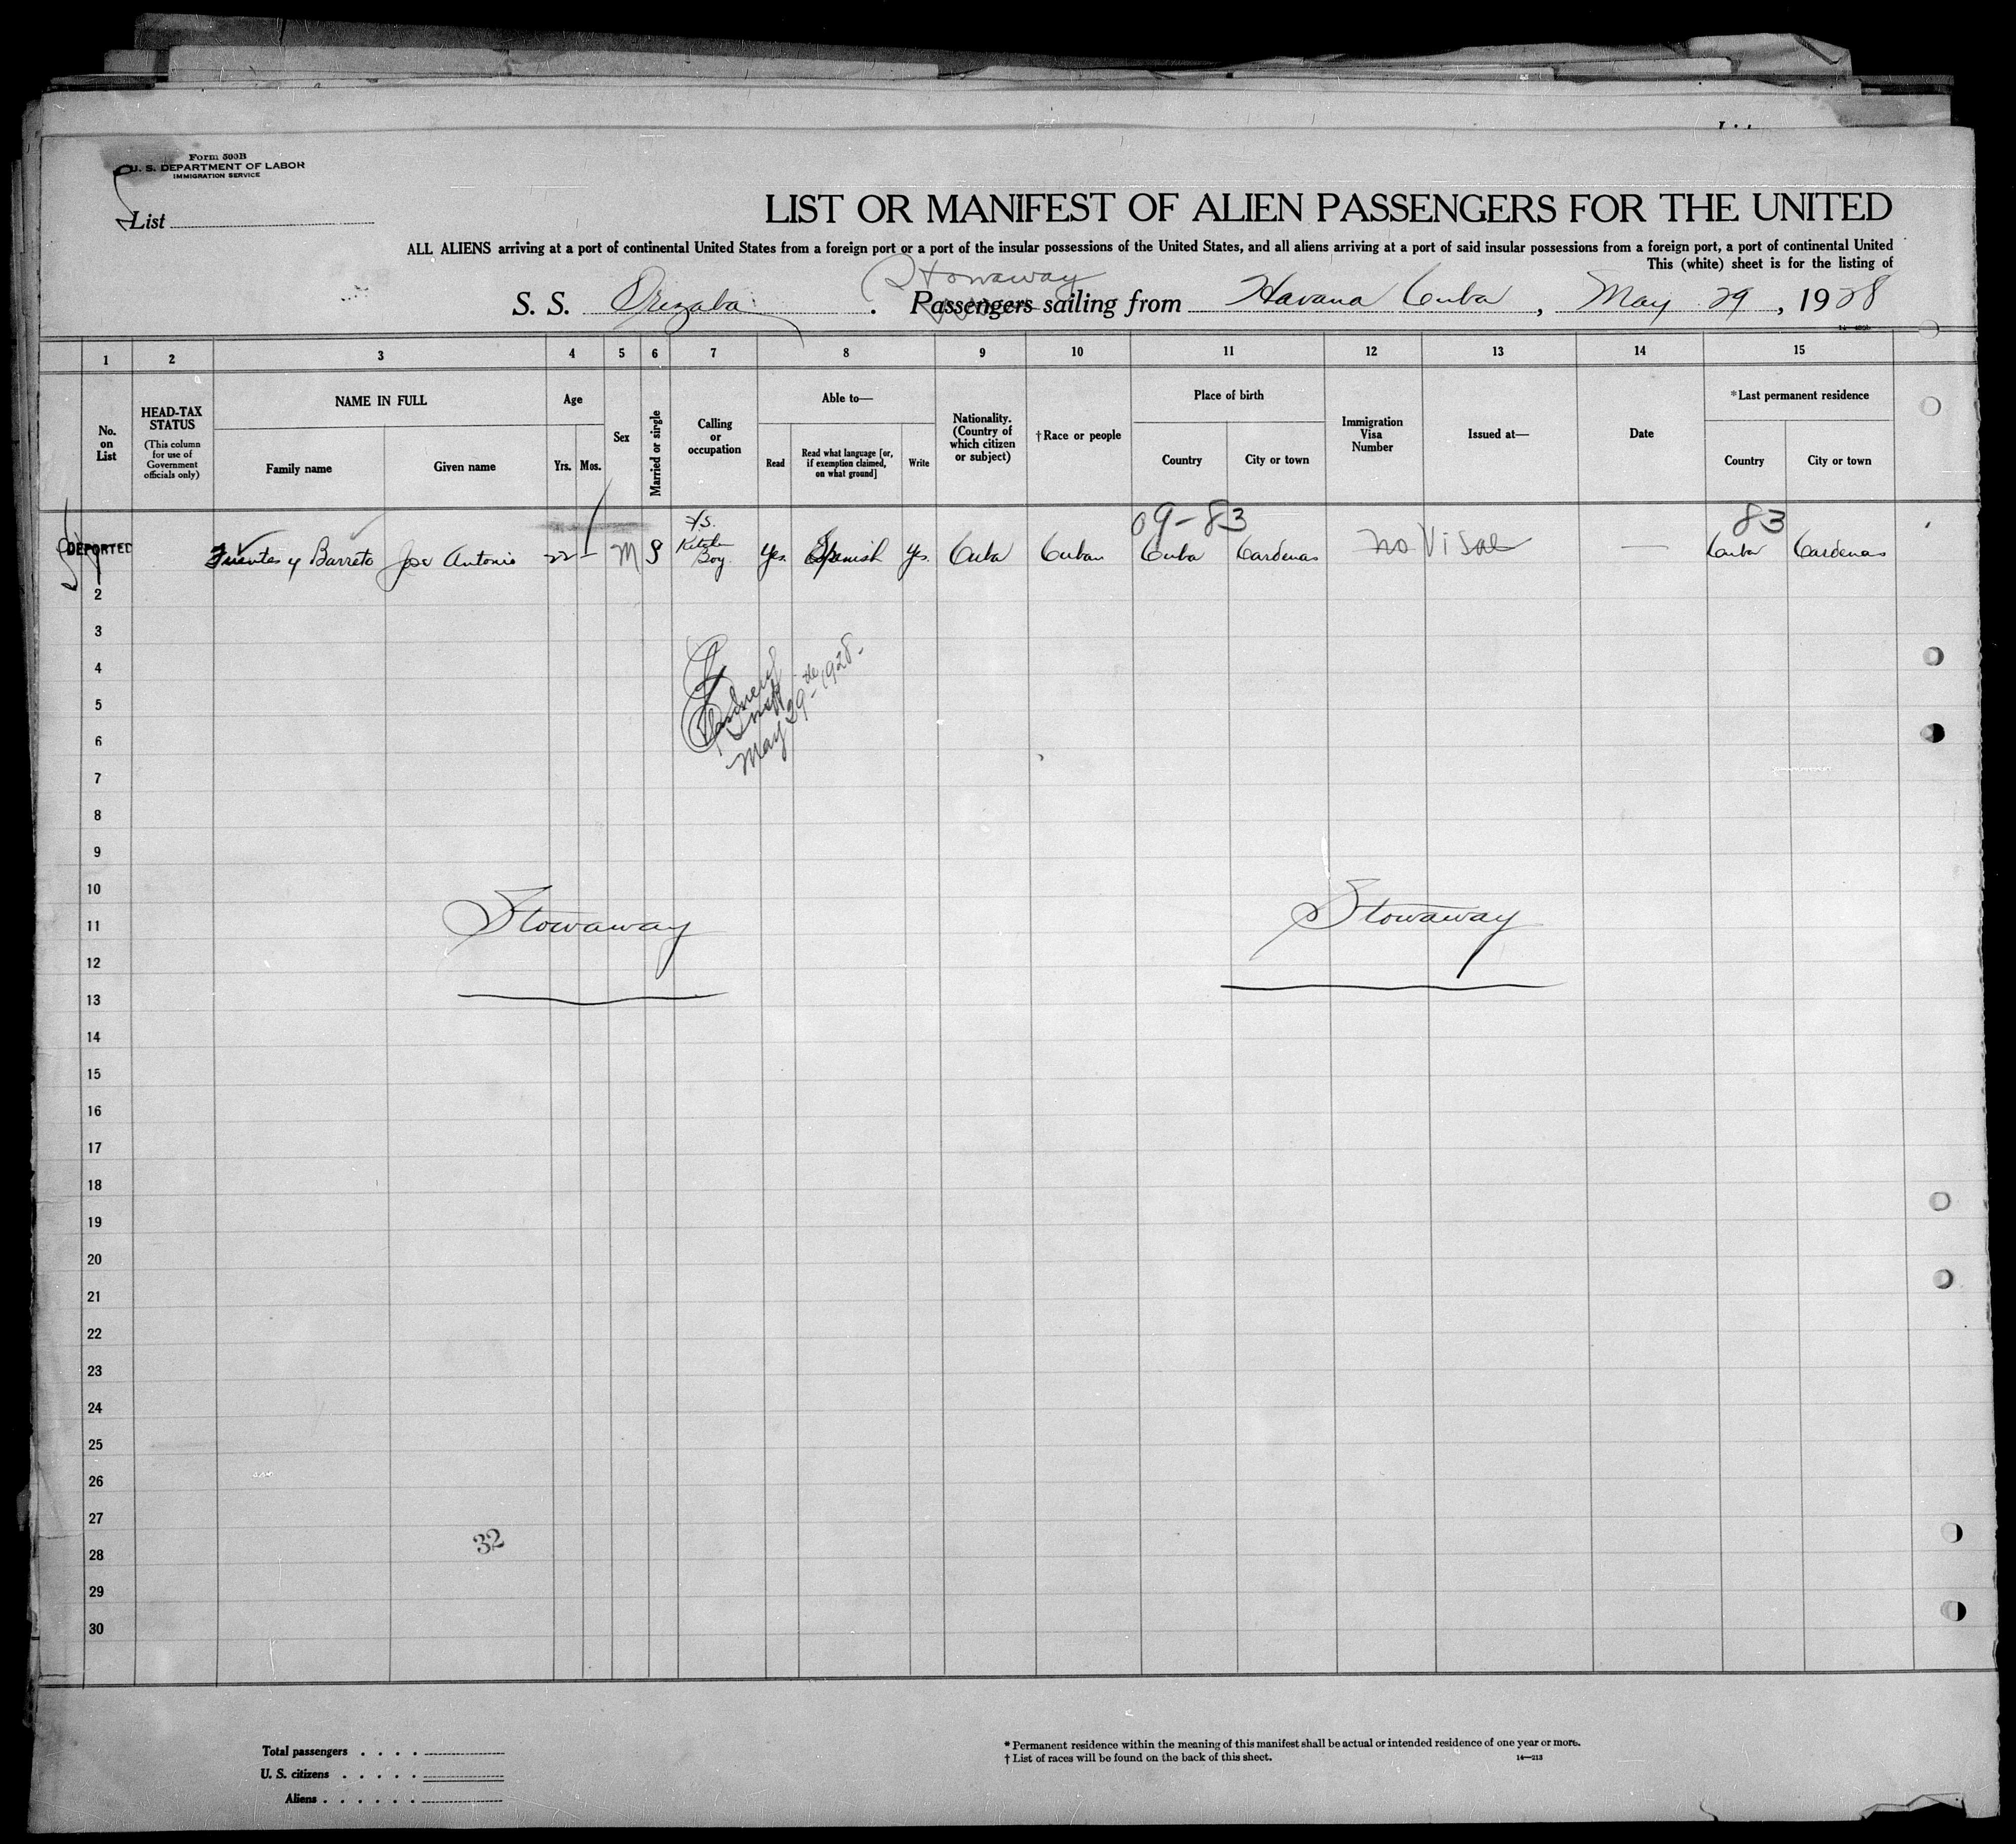 Form 500B
U. S. DEPARTMENT OF LABOR
IMMIGRATION SERVICE
List
LIST OR MANIFEST OF ALIEN PASSENGERS FOR THE UNITED
ALL ALIENS arriving at a port of continental United States from a foreign port or a port of the insular possessions of the United States, and all aliens arriving at a port of said insular possessions from a foreign port, a port of continental United
This (white) sheet is for the listing of
Stowaway
S. S. Orizaba . Passengers sailing from Havana Cuba , May 29 , 1928
1 2 3 4 5 6 7 8 9 10 11 12 13 14 15
No. on List
HEAD-TAX STATUS
(This column for use of Government officials only)
NAME IN FULL
Family name
Given name
Age
Yrs.
Mos.
Sex
Married or single
Calling or occupation
Able to—
Read
Read what language [or, if exemption claimed, on what ground]
Write
Nationality. (Country of which citizen or subject)
†Race or people
Place of birth
Country
City or town
Immigration Visa Number
Issued at—
Date
*Last permanent residence
Country
City or town
09-83
83
DEPORTED Fuentes y Barreto Jose Antonio 22 — M S Kitchen Boy. Yes. Spanish Yes. Cuba Cuban Cuba Cardenas no Visae — Cuba Cardenas
2
3
4
5
May 29th 1928.
6
7
8
9
10
11 Stowaway Stowaway
12
13
14
15
16
17
18
19
20
21
22
23
24
25
26
27
32
28
29
30
Total passengers . . . .
U. S. citizens . . . . .
Aliens . . . . . .
* Permanent residence within the meaning of this manifest shall be actual or intended residence of one year or more.
† List of races will be found on the back of this sheet.
14—213